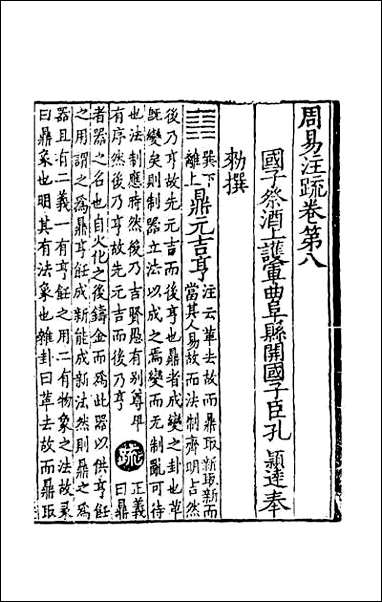 周易注疏卷第八
國子祭酒上護軍曲阜縣開國子臣孔 頴達奉
勑撰
䷱巽下離上鼎元吉亨注云革去故而鼎取新取新而當其人易故而法制齊明吉然
後乃亨故先元吉而後亨也鼎者成變之卦也革
既變矣則制器立法以成之焉變而无制亂可待
也法制應時然後乃吉賢愚有別尊卑
有序然後乃亨故先元吉而後乃亨 疏 正義曰鼎
者器之名也自火化之後鑄金而爲此器以供亨飪
之用謂之爲鼎亨飪成新能成新法然則鼎之爲
器且有二義一有亨飪之用二有物象之法故彖
曰鼎象也明其有法象也雜卦曰革去故而鼎取